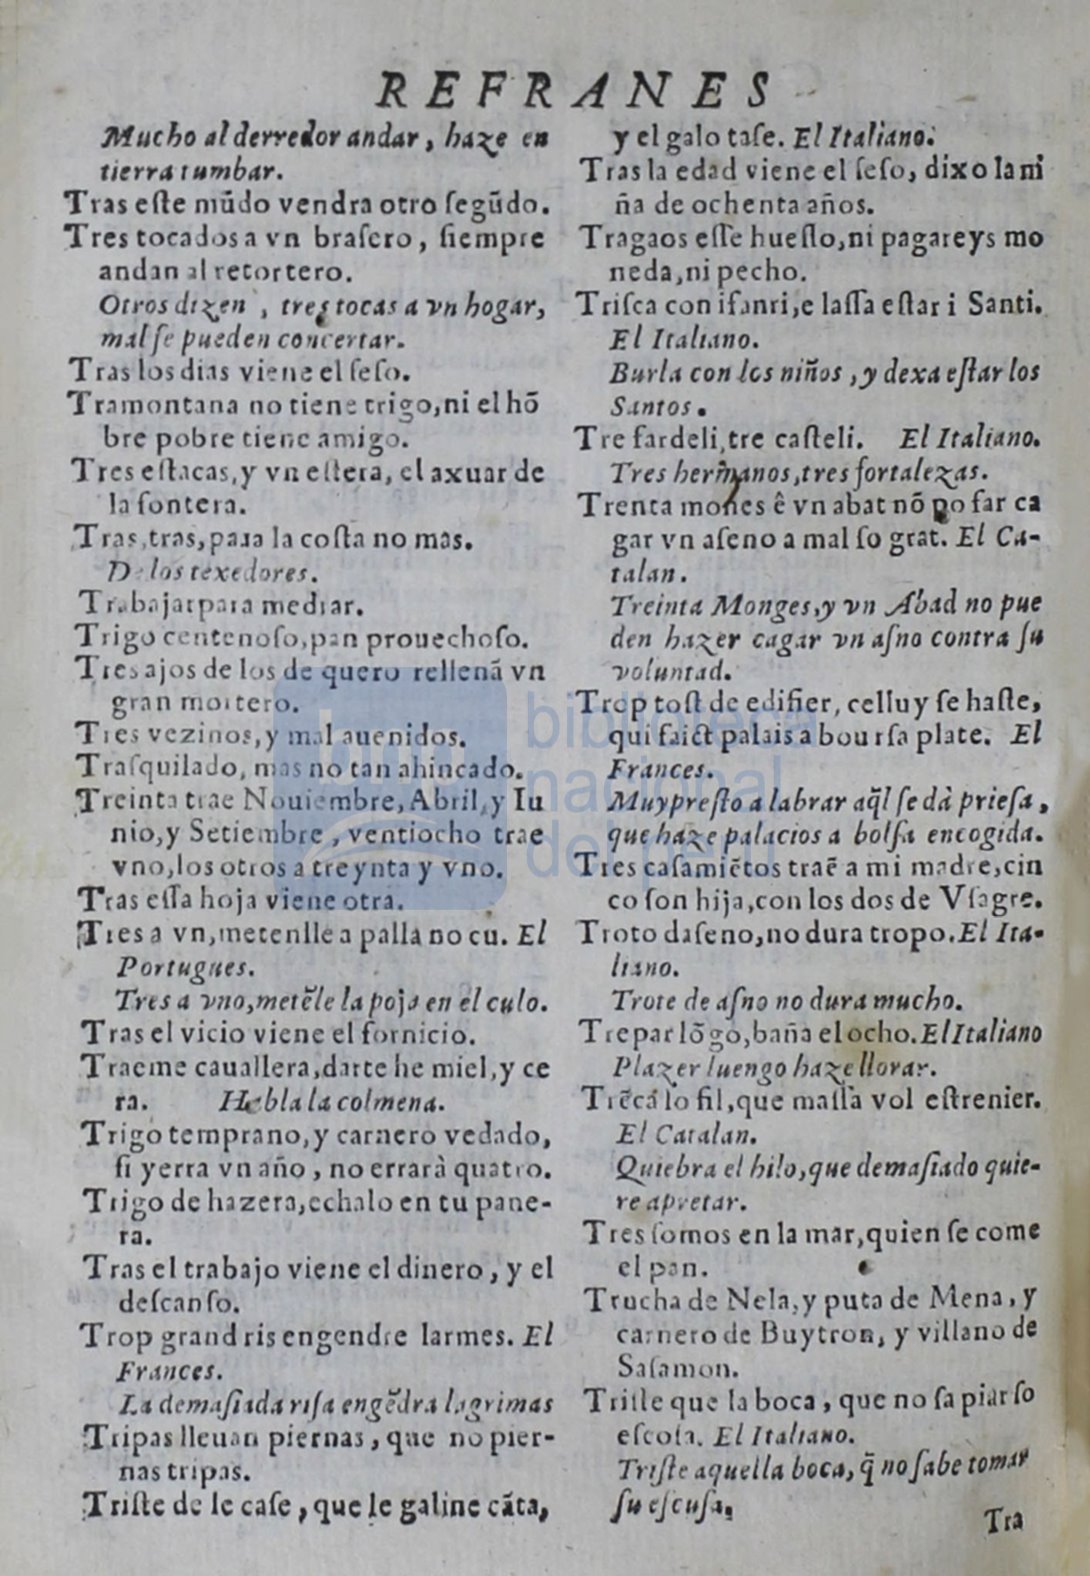 REFRANES
Mucho al derredor andar, haze en
tierra tumbar.
Tras eſte mũdo vendra otro ſegũdo.
Tres tocados a vn braſero, ſiempre
andan al retortero.
Otros dizen, tres tocas a vn hogar,
mal ſe pueden concertar.
Tras los dias viene el ſeſo.
Tramontana no tiene trigo, ni el hõ
bre pobre tiene amigo.
Tres eſtacas, y vn eſtera, el axuar de
la fontera.
Tras, tras, para la coſta no mas.
De los texedores.
Trabajar para medrar.
Trigo centenoſo, pan prouechoſo.
Tres ajos de los de quero rellenã vn
gran mortero.
Tres vezinos, y mal auenidos.
Traſquilado, mas no tan ahincado.
Treinta trae Nouiembre, Abril, y Iu
nio, y Setiembre, ventiocho trae
vno, los otros a treynta y vno.
Tras eſſa hoja viene otra.
Tres a vn, metenlle a palla no cu. El
Portugues.
Tres a vno, metẽle la paja en el culo.
Tras el vicio viene el fornicio.
Traeme cauallera, darte he miel, y ce
ra. Habla la colmena.
Trigo temprano, y carnero vedado,
ſi yerra vn año, no errarà quatro.
Trigo de hazera, echalo en tu pane-
ra.
Tras el trabajo viene el dinero, y el
deſcanſo.
Trop grand ris engendre larmes. El
Frances.
La demaſiada riſa engẽdra lagrimas
Tripas lleuan piernas, que no pier-
nas tripas.
Triſte de le caſe, que le galine cãta,
y el galo taſe. El Italiano.
Tras la edad viene el ſeſo, dixo la ni
ña de ochenta años.
Tragaos eſſe hueſſo, ni pagareys mo
neda, ni pecho.
Triſca con ifanri, e laſſa eſtar i Santi.
El Italiano.
Burla con los niños, y dexa eſtar los
Santos.
Tre fardeli, tre caſteli. El Italiano.
Tres hermanos, tres fortalezas.
Trenta mones ê vn abat nõ po far ca
gar vn aſeno a mal ſo grat. El Ca-
talan.
Treinta Monges, y vn Abad no pue
den hazer cagar vn aſno contra ſu
voluntad.
Trop toſt de edifier, celluy ſe haſte,
qui faict palais a bourſa plate. El
Frances.
Muy preſto a labrar aq̃l ſe dà prieſa,
que haze palacios a bolſa encogida.
Tres caſamiẽtos traẽ a mi madre, cin
co ſon hija, con los dos de Vſagre.
Troto daſeno, no dura tropo. El Ita-
liano.
Trote de aſno no dura mucho.
Trepar lõgo, baña el ocho. El Italiano
Plazer luengo haze llorar.
Trẽcá lo fil, que maſſa vol eſtrenier.
El Catalan.
Quiebra el hilo, que demaſiado quie-
re apretar.
Tres ſomos en la mar, quien ſe come
el pan.
Trucha de Nela, y puta de Mena, y
carnero de Buytron, y villano de
Saſamon.
Triſte que la boca, que no ſa piar ſo
eſcoſa. El Italiano.
Triſte aquella boca, q̃ no ſabe tomar
ſu eſcuſa.
Tra
biblioteca
nacional
del perú